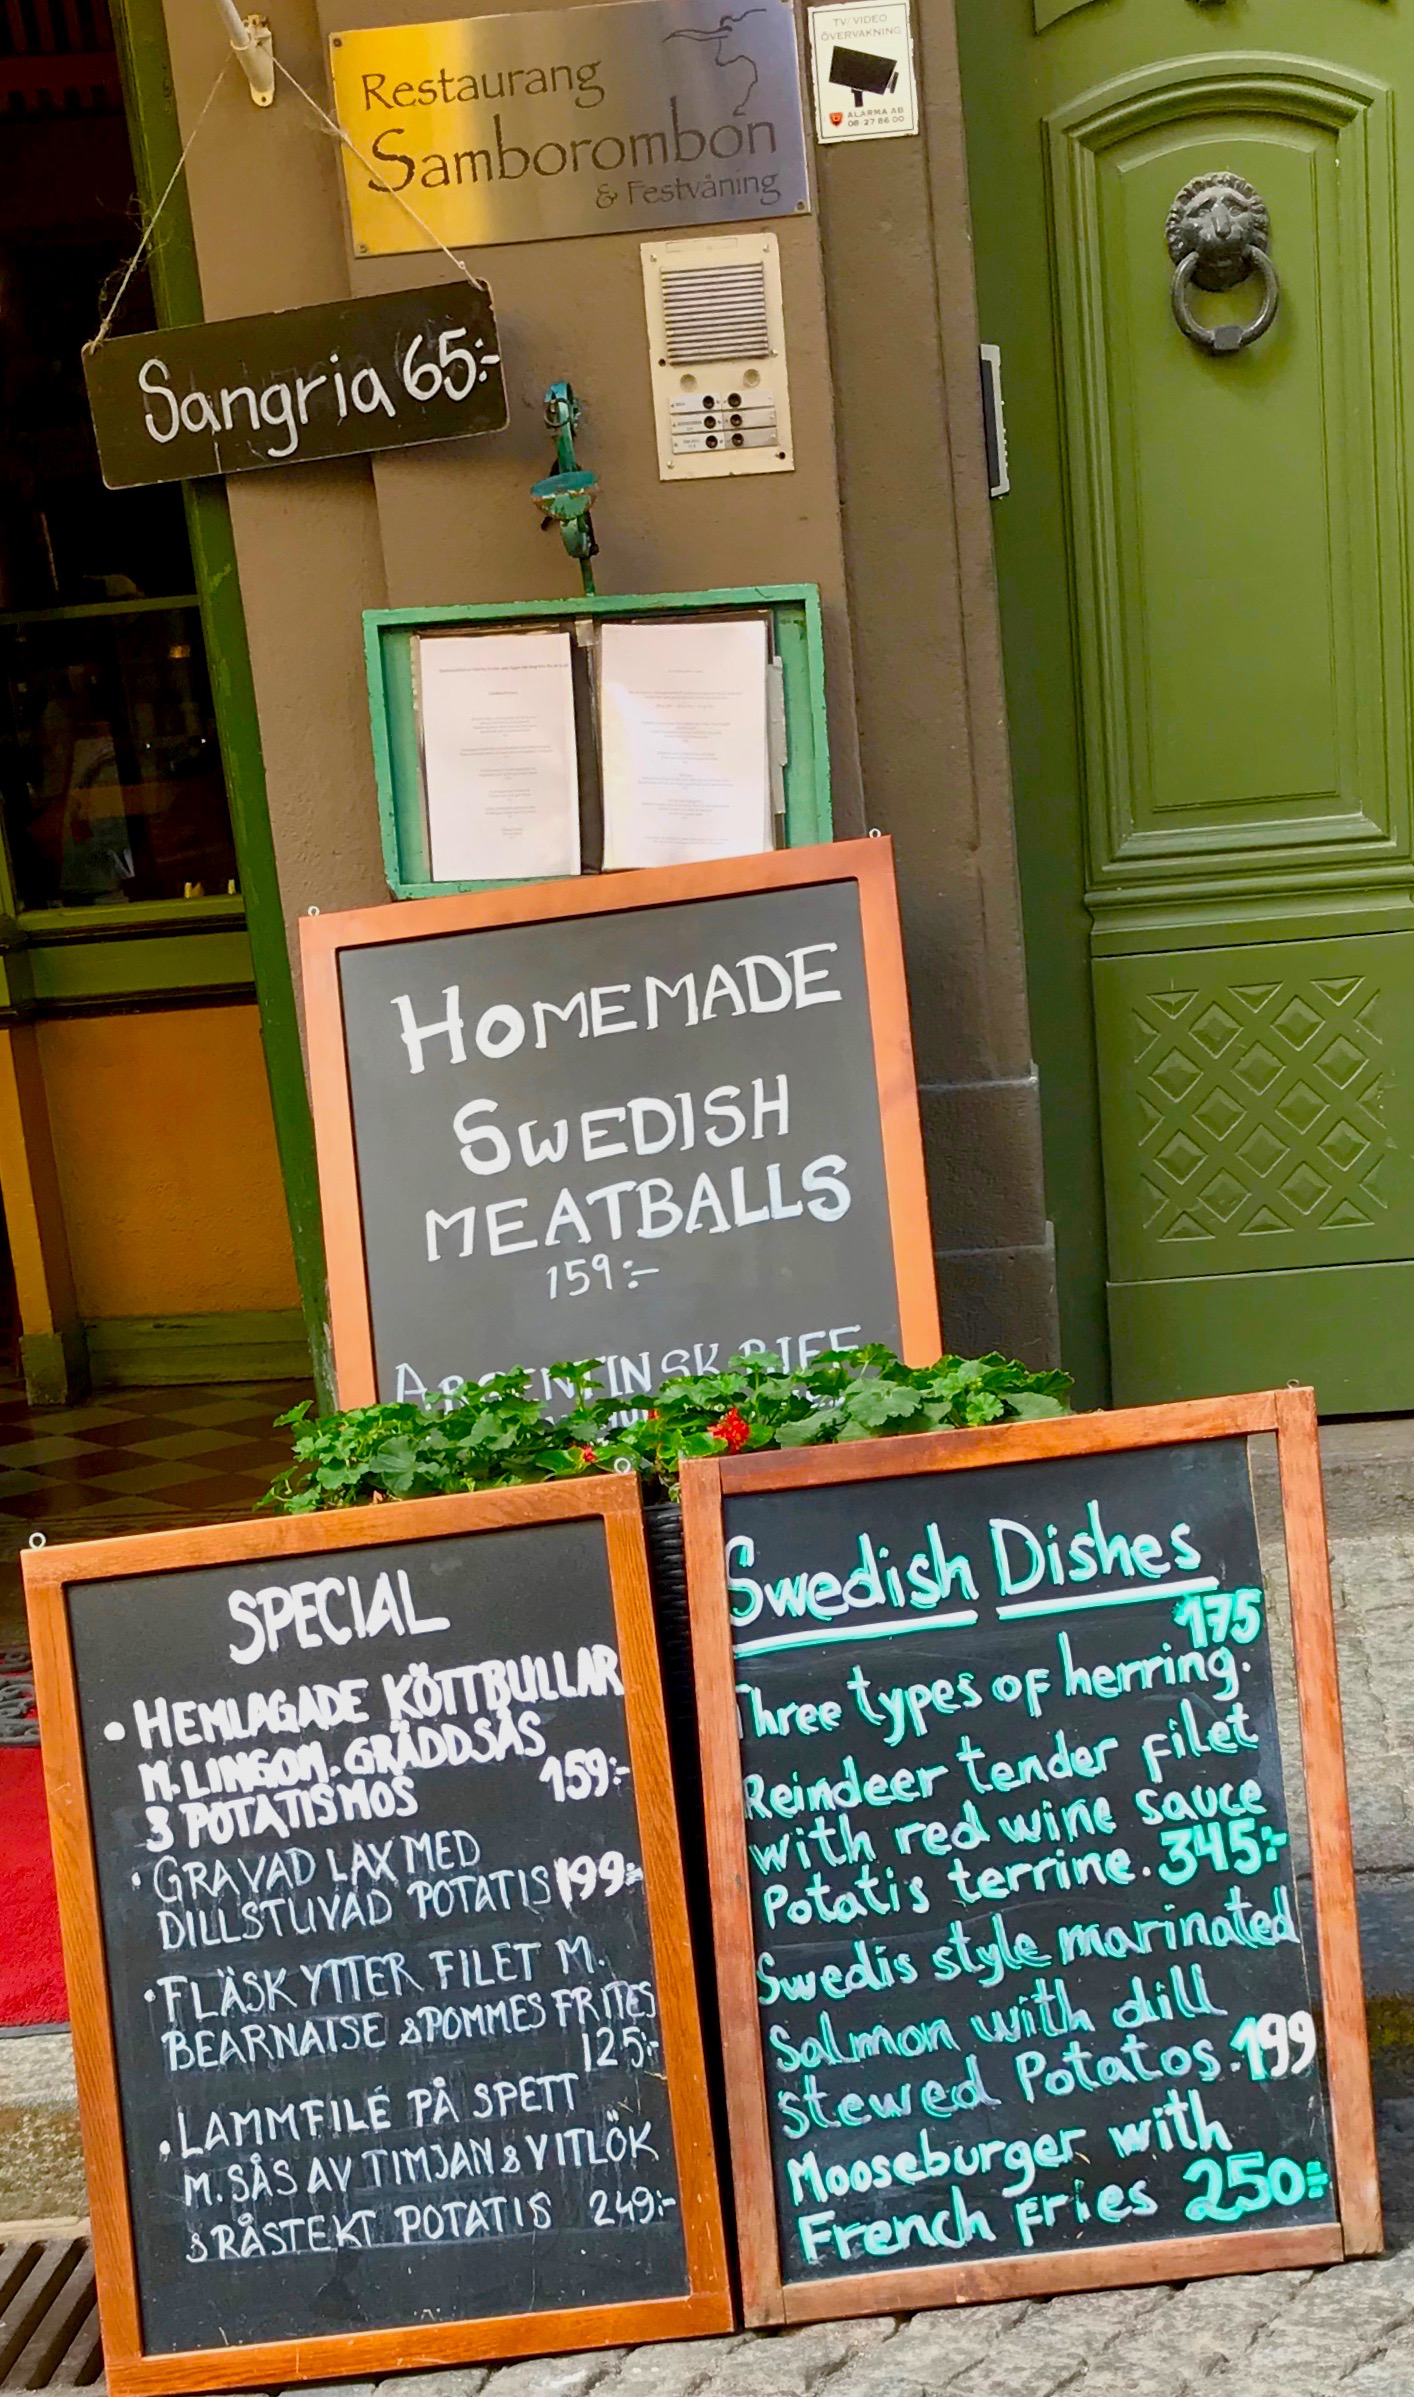 Restaurang
Samborombon
& Festvåning
TV/VIDEO
ÖVERVAKNING
ALARMA AB
08-27 86 00
Sangria 65:-
HOMEMADE
SWEDISH
MEATBALLS
159:-
ARGENTINSK BIFF
SPECIAL
• HEMLAGADE KÖTTBULLAR
M. LINGON. GRÄDDSÅS
& POTATISMOS 159:-
• GRAVAD LAX MED
DILLSTUVAD POTATIS 199:-
• FLÄSK YTTER FILET M.
BEARNAISE & POMMES FRITES
125:-
• LAMMFILÉ PÅ SPETT
M. SÅS AV TIMJAN & VITLÖK
& RÅSTEKT POTATIS 249:-
Swedish Dishes
175
Three types of herring.
Reindeer tender filet
with red wine sauce
Potatis terrine. 345:-
Swedis style marinated
Salmon with dill
stewed Potatos. 199
Mooseburger with
French fries 250:-